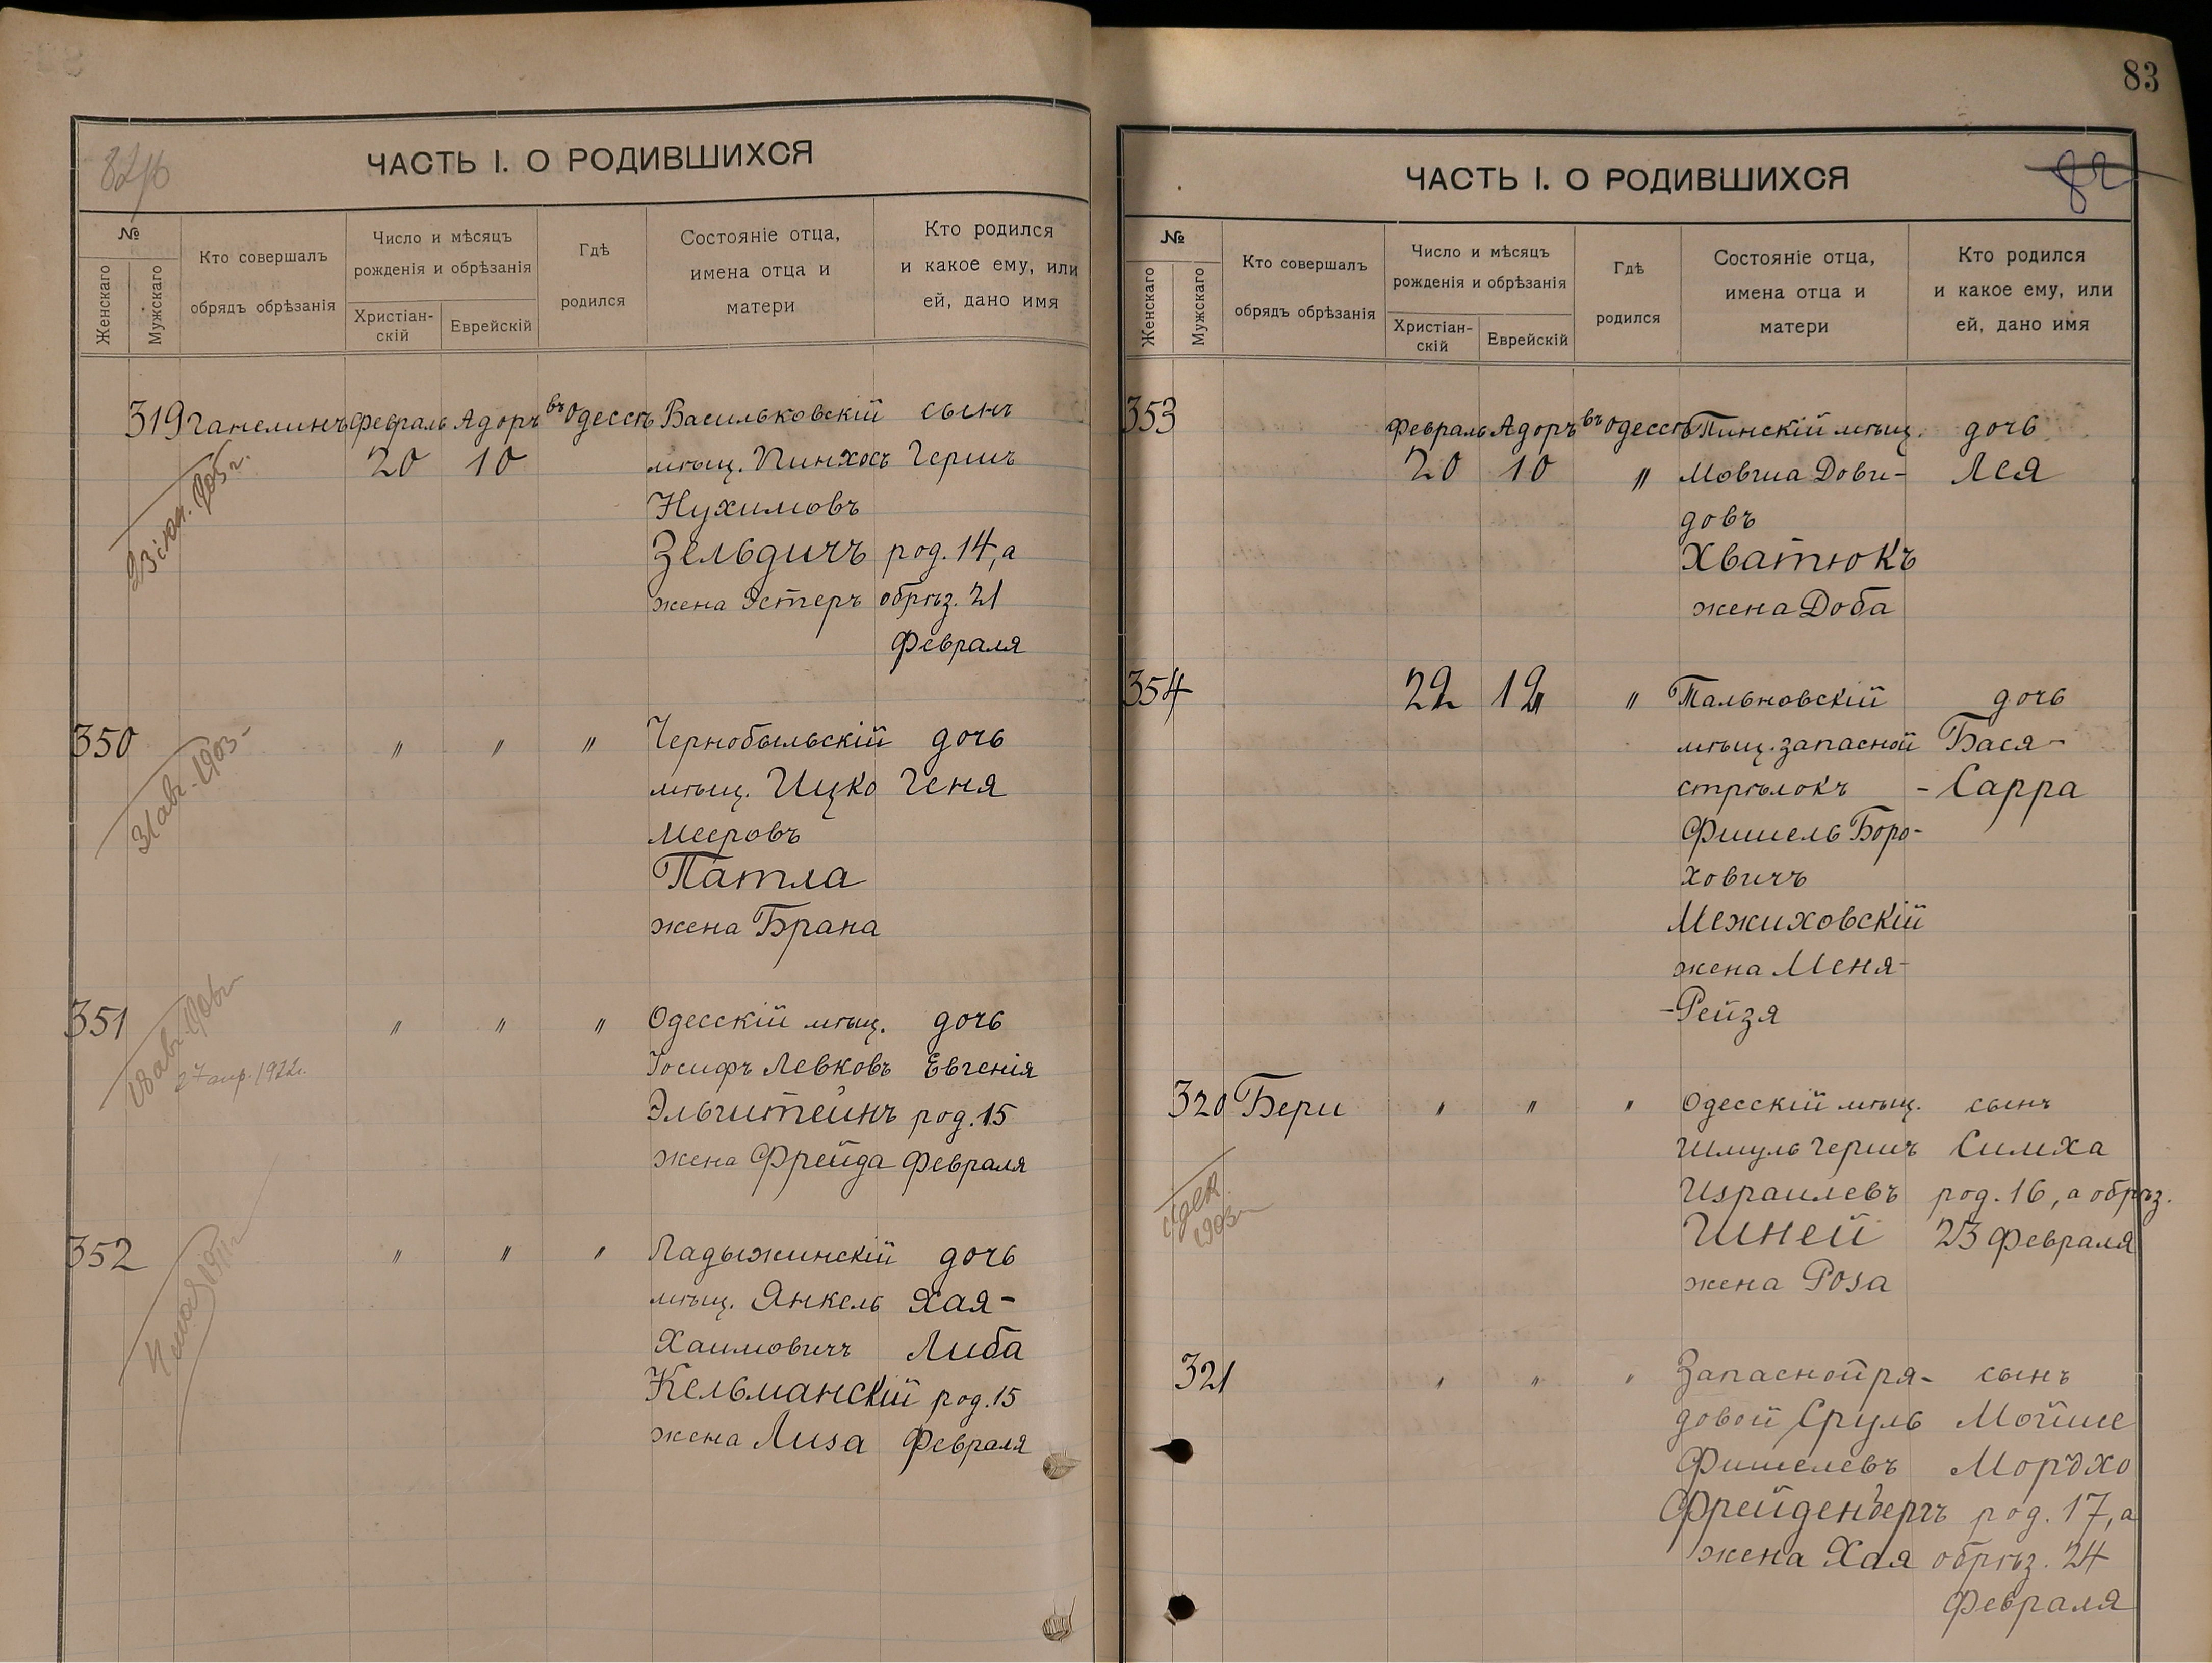 ЧАСТЬ I. О РОДИВШИХСЯ
№
Женскаго
Мужскаго
Кто совершалъ
обрядъ обрѣзанія
Число и мѣсяцъ
рожденія и обрѣзанія
Христіан-
скій
Еврейскій
Гдѣ
родился
Состояніе отца,
имена отца и
матери
Кто родился
и какое ему, или
ей, дано имя
319 Ганелинъ Февраль Адоръ въ Одессѣ Васильковскій сынъ
20 10 мѣщ. Пинхосъ Гершъ
Нухимовъ
Зельдичъ род. 14, а
жена Эстеръ обрѣз. 21
Февраля
350 〃 〃 〃 Чернобыльскій дочь
31 авг. 1903
мѣщ. Ицко Геня
Мееровъ
Патла
жена Брана
351 〃 〃 〃 Одесскій мѣщ. дочь
27 апр. 1922г.
Іосифъ Левковъ Евгенія
Эльгитейнъ род. 15
жена Фрейда Февраля
352 〃 〃 〃 Ладыжинскій дочь
мѣщ. Янкель Хая-
Хаимовичъ Либа
Кельманскій род. 15
жена Лиза Февраля
83
ЧАСТЬ I. О РОДИВШИХСЯ
82
№
Женскаго
Мужскаго
Кто совершалъ
обрядъ обрѣзанія
Число и мѣсяцъ
рожденія и обрѣзанія
Христіан-
скій
Еврейскій
Гдѣ
родился
Состояніе отца,
имена отца и
матери
Кто родился
и какое ему, или
ей, дано имя
353 Февраль Адоръ въ Одессѣ Пинскій мѣщ. дочь
20 10 〃 Мовша Дови- Лея
довъ
Хватюкъ
жена Доба
354 22 12 〃 Тальновскій дочь
мѣщ. запасной Бася-
стрѣлокъ -Сарра
Фишель Боро-
ховичъ
Межиховскій
жена Меня-
-Рейзя
320 Бери 〃 〃 〃 Одесскій мѣщ. сынъ
Шмуль Гершъ Симха
Израилевъ род. 16, а обрѣз.
Шней 23 Февраля
жена Роза
321 〃 〃 〃 Запасной ря- сынъ
довой Сруль Мойше
Фишелевъ Мордхо
Фрейденбергъ род. 17, а
жена Хая обрѣз. 24
Февраля